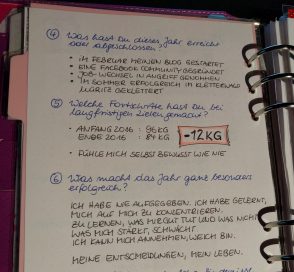 ④ Was hast du dieses Jahr erreicht
oder abgeschlossen?
• IM FEBRUAR MEINEN BLOG GESTARTET
• EINE FACEBOOK COMMUNITY GEGRÜNDET
• JOB-WECHSEL IN ANGRIFF GENOMMEN
• IM SOMMER ERFOLGREICH IM KLETTERWALD
MÜRITZ GEKLETTERT
⑤ Welche Fortschritte hast du bei
langfristigen Zielen gemacht?
• ANFANG 2016 : 96 KG
ENDE 2016 : 84 KG
-12KG
• FÜHLE MICH SELBST BEWUSST WIE NIE
⑥ Was macht das Jahr ganz besonders
erfolgreich?
ICH HABE NIE AUFGEGEBEN. ICH HABE GELERNT,
MICH AUF MICH ZU KONZENTRIEREN.
ZU LERNEN, WAS MIR GUT TUT UND WAS NICHT.
WAS MICH STÄRKT, SCHWÄCHT.
ICH KANN MICH ANNEHMEN, WEICH BIN.
MEINE ENTSCHEIDUNGEN, MEIN LEBEN.